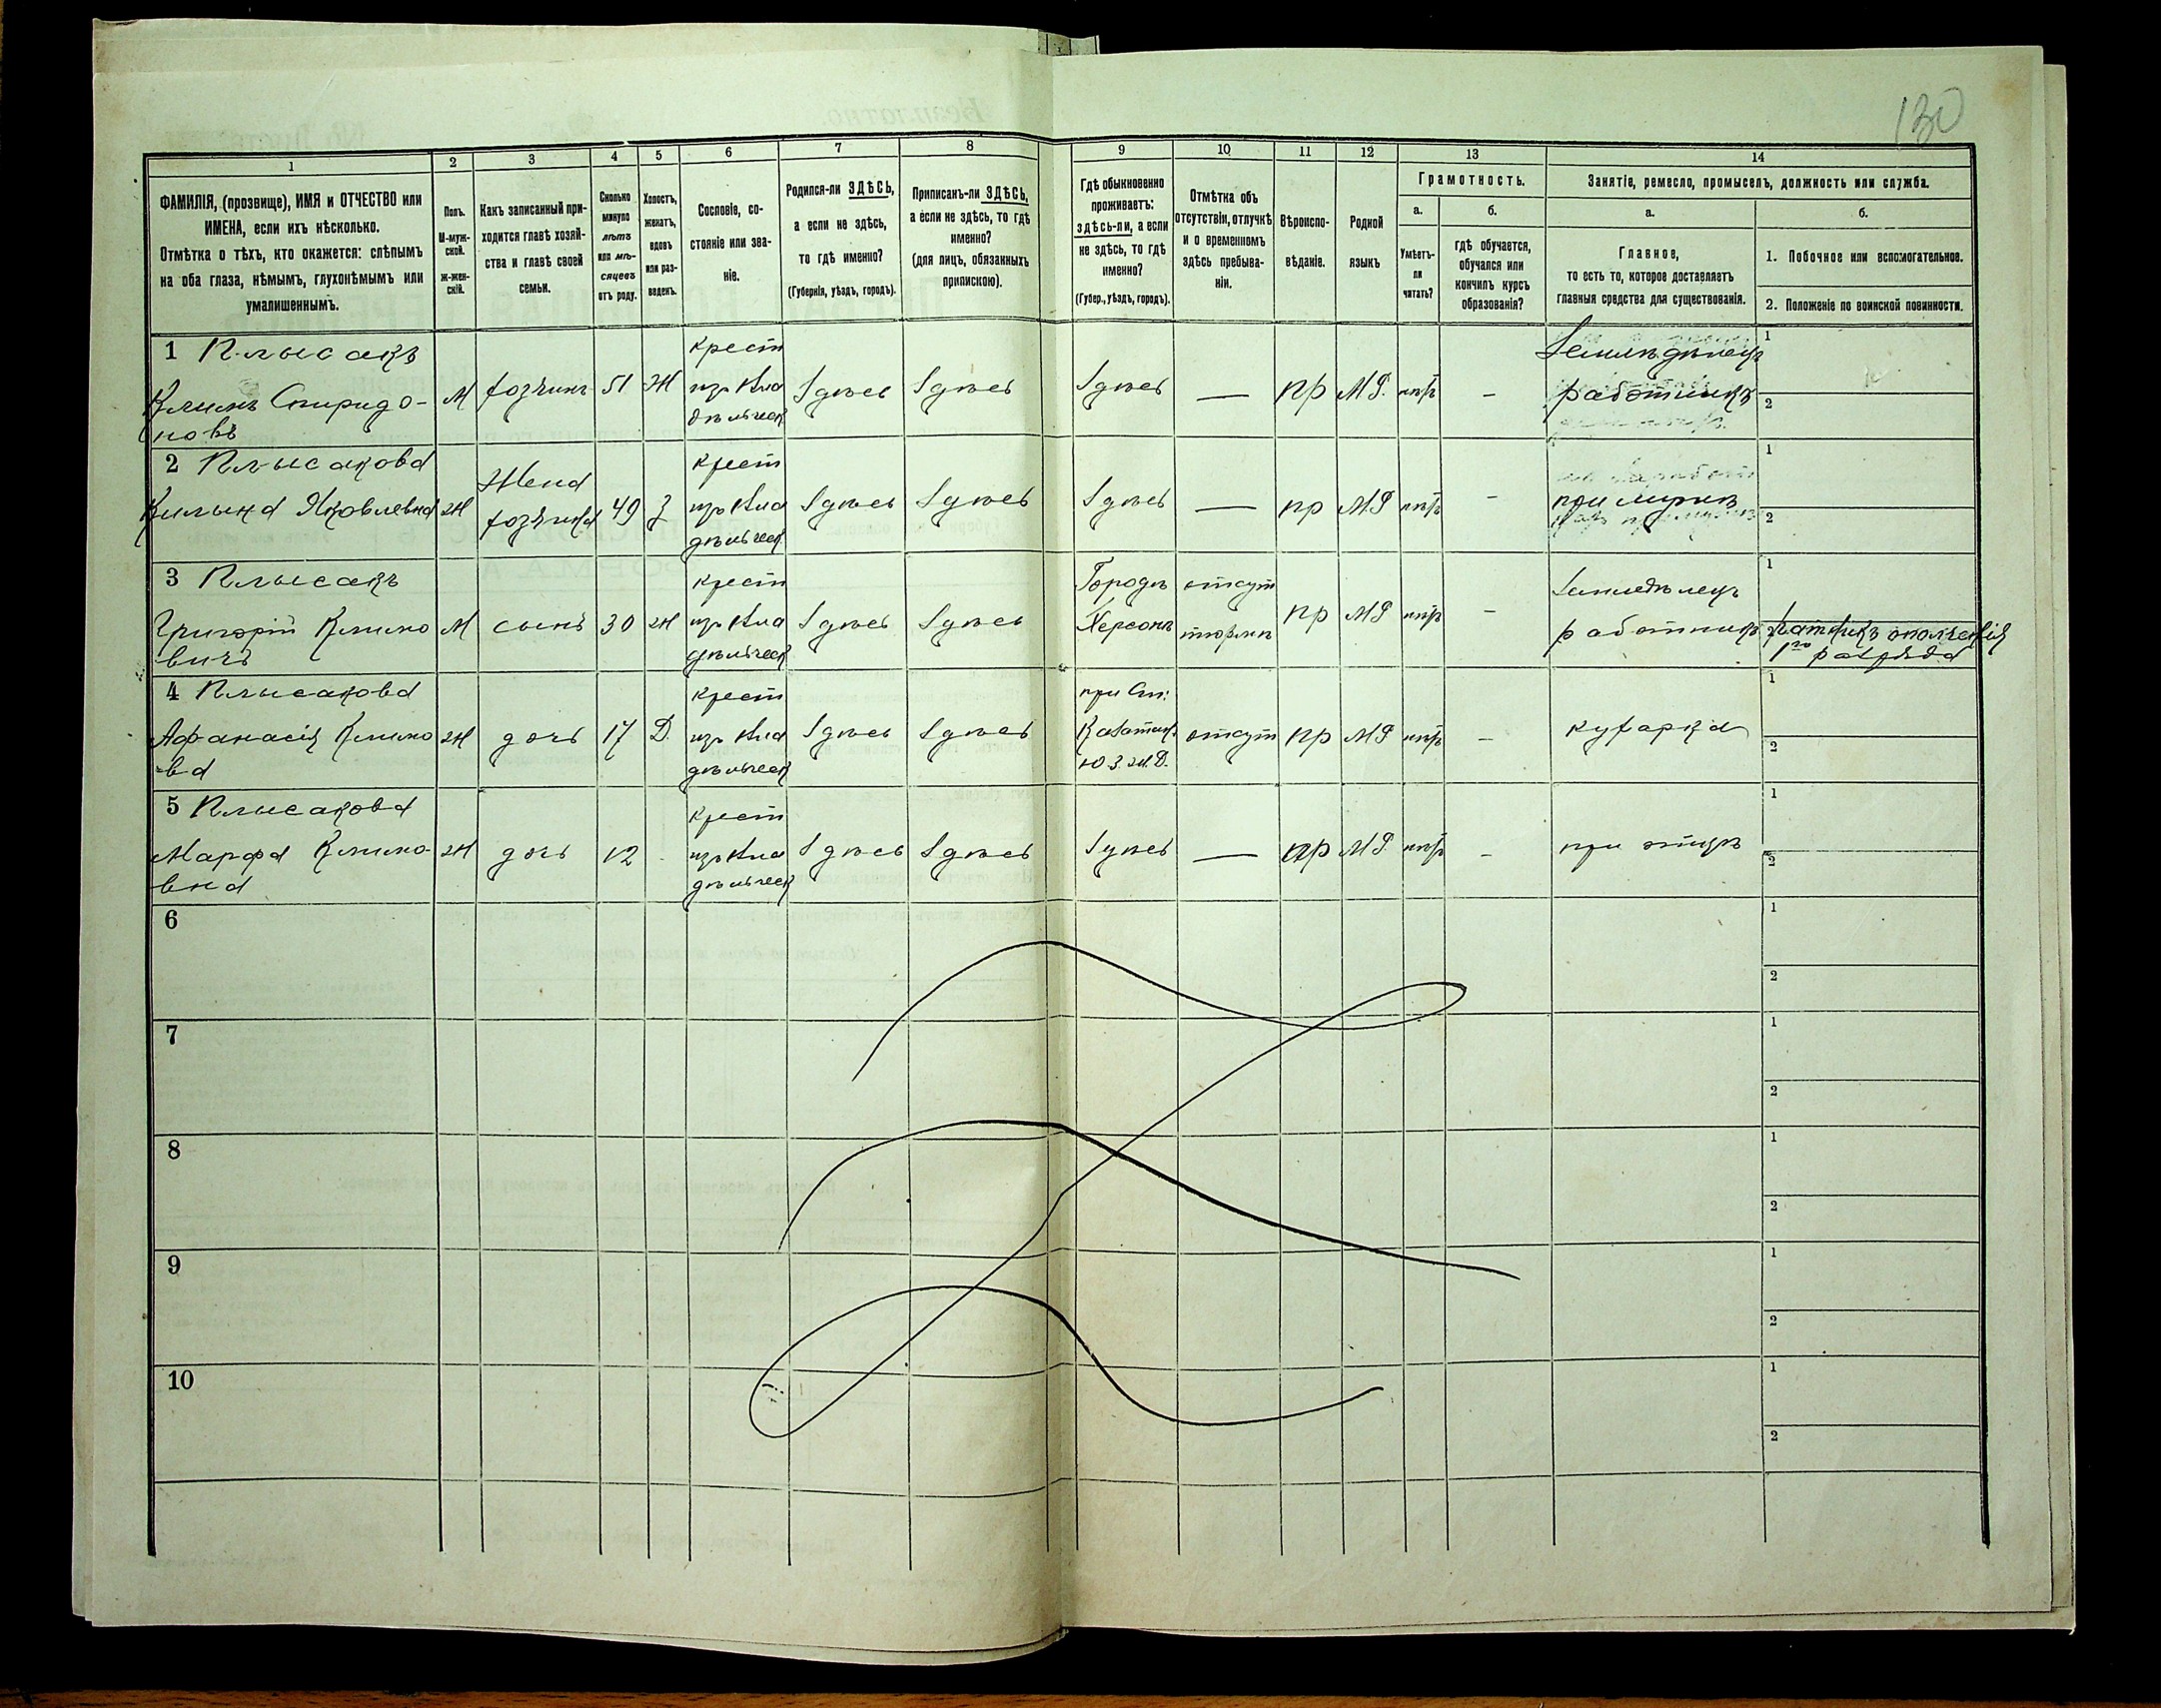 130
1
2
3
4
5
6
7
8
9
10
11
12
13
14
ФАМИЛІЯ, (прозвище), ИМЯ и ОТЧЕСТВО или
ИМЕНА, если ихъ нѣсколько.
Отмѣтка о тѣхъ, кто окажется: слѣпымъ
на оба глаза, нѣмымъ, глухонѣмымъ или
умалишеннымъ.
Полъ.
М-муж-
ской.
Ж-жен-
скій.
Какъ записанный при-
ходится главѣ хозяй-
ства и главѣ своей
семьи.
Сколько
минуло
лѣтъ
или мѣ-
сяцевъ
отъ роду.
Холостъ,
женатъ,
вдовъ
или раз-
веденъ.
Сословіе, со-
стояніе или зва-
ніе.
Родился-ли ЗДѢСЬ,
а если не здѣсь,
то гдѣ именно?
(Губернія, уѣздъ, городъ).
Приписанъ-ли ЗДѢСЬ,
а если не здѣсь, то гдѣ
именно?
(для лицъ, обязанныхъ
припискою).
Гдѣ обыкновенно
проживаетъ:
здѣсь-ли, а если
не здѣсь, то гдѣ
именно?
(Губер., уѣздъ, городъ).
Отмѣтка объ
отсутствіи, отлучкѣ
и о временномъ
здѣсь пребыва-
ніи.
Вѣроиспо-
вѣданіе.
Родной
языкъ
Грамотность.
а.
Умѣетъ-
ли
читать?
б.
гдѣ обучается,
обучался или
кончилъ курсъ
образованія?
Занятіе, ремесло, промыселъ, должность или служба.
а.
Главное,
то есть то, которое доставляетъ
главныя средства для существованія.
б.
1. Побочное или вспомогательное.
2. Положеніе по воинской повинности.
1 Плысакъ
Климъ Спиридо-
новъ
М
хозяинъ
51
Ж
крест
изъ вла
дѣльческ
Здѣсь
Здѣсь
Здѣсь
—
пр
МР.
нѣтъ
—
Земледѣлецъ
работникъ
1
2
2 Плысакова
Килына Яковлевна
Ж
Жена
хозяина
49
З
крест
изъ вла
дѣльческ
Здѣсь
Здѣсь
Здѣсь
—
пр
МР
нѣтъ
—
при мужѣ
1
2
3 Плысакъ
Григорій Климо
вичъ
М
сынъ
30
Ж
крест
изъ вла
дѣльческ
Здѣсь
Здѣсь
Городъ
Херсонъ
отсут
тюрьмѣ
пр
МР
нѣтъ
—
Земледѣлецъ
работникъ
1
ратникъ ополченія
1го разряда
4 Плысакова
Афанасія Климо
ва
Ж
дочь
17
Д.
крест
изъ вла
дѣльческ
Здѣсь
Здѣсь
при Ст:
Ю.З.Ж.Д.
отсут
пр
МР
нѣтъ
—
кухарка
1
2
5 Плысакова
Марфа Климо-
вна
Ж
дочь
12
-
крест
изъ вла
дѣльческ
Здѣсь
Здѣсь
Здѣсь
—
пр
МР
нѣтъ
—
при отцѣ
1
2
6
1
2
7
1
2
8
1
2
9
1
2
10
1
2